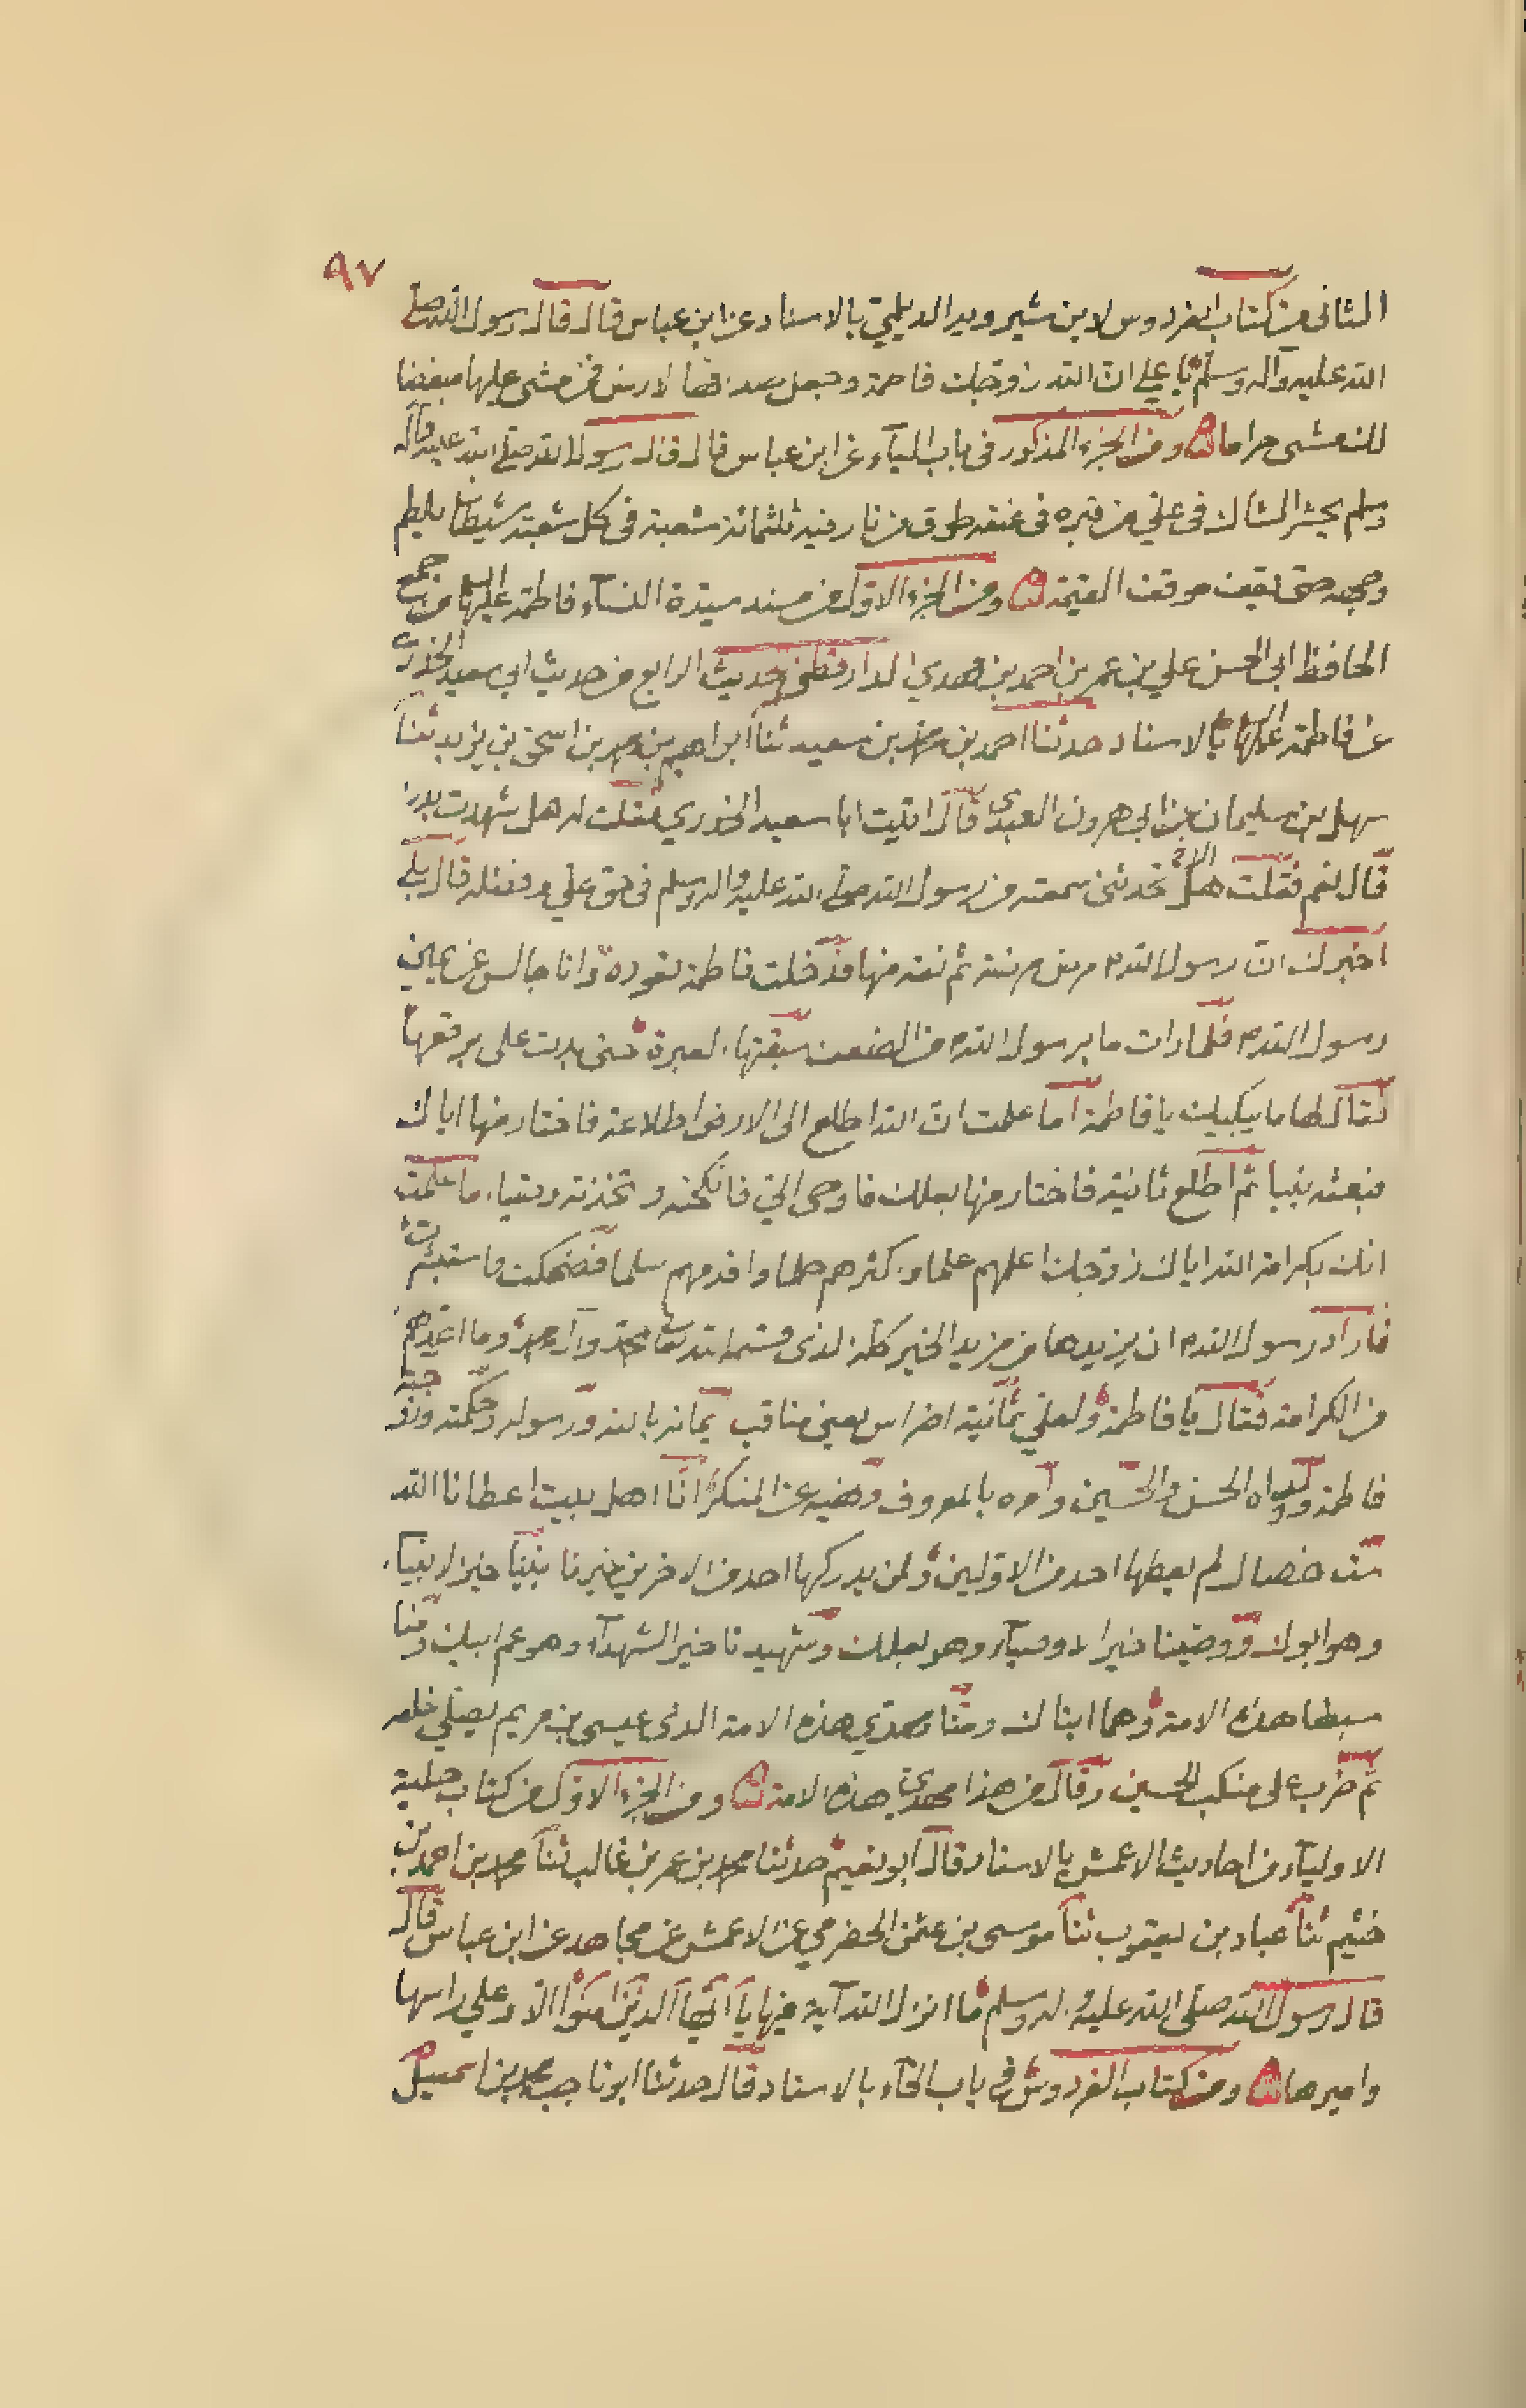 ٩٧
الثانى من كتاب الفردوس لابن شيرويه الديلمي بالاسناد عن ابن عباس قال قال رسول الله صلى
الله عليه وآله وسلم يا علي ان الله زوجك فاطمة وجعل صداقها الارض فمن مشى عليها مبغضا
لك مشى حراما ومن الجزء المذكور فى باب الياء عن ابن عباس قال قال رسول الله صلى الله عليه وآله
وسلم يحشر الشاك فى علي من قبره فى عنقه طوق من نار فيه ثلثمائة شعبة فى كل شعبة شيطان يلطم
وجهه حتى يقف موقف القيمة ومن الجزء الاول من مسند سيدة النساء فاطمة عليها السلام من جمع
الحافظ ابى الحسن علي بن عمر بن احمد بن مهدي الدارقطنى حديث الرابع من حديث ابي سعيد الخدري
عن فاطمة عليها السلام بالاسناد حدثنا احمد بن محمد بن سعيد ثنا ابراهيم بن محمد بن اسحق بن يزيد ثنا
سهل بن سليمان عن ابى هرون العبدى قال اتيت ابا سعيد الخدري فقلت له هل شهدت بدرا
قال نعم فقلت الا تحدثنى سمعته من رسول الله صلى الله عليه وآله وسلم فى حق علي وفضله قال بلى
اخبرك ان رسول الله م مرض مرضة ثم نقه منها فدخلت فاطمة تعوده وانا جالس عن يمين
رسول الله م فلما رات ما برسول الله م من الضعف سبقتها العبرة حتى بدت على برقعها
فقال لها ما يبكيك يا فاطمة اما علمت ان الله اطلع الى الارض اطلاعة فاختار منها اباك
فبعثه نبيا ثم اطلع ثانية فاختار منها بعلك فاوحى الي فانكحته واتخذته وصيا، ما علمت
انك بكرامة الله اياك زوجك اعلمهم علما واكثرهم حلما واقدمهم سلما فضحكت واستبشرت
فاراد رسول الله م ان يزيدها من مزيد الخير كله الذى قسمه الله تعالى لمحمد وآل محمد وما اعد لهم
من الكرامة فقال يا فاطمة ولعلي ثمانية اضراس يعنى مناقب ايمانه بالله ورسوله وحكمته وزوجته
فاطمة وولداه الحسن والحسين وامره بالمعروف ونهيه عن المنكر انا اهل بيت اعطانا الله
ست خصال لم يعطها احد من الاولين ولن يدركها احد من الاخرين غيرنا نبينا خير الانبياء
وهو ابوك ووصينا خير الاوصياء وهو بعلك وشهيدنا خير الشهداء وهو عم ابيك ومنا
سبطا هذه الامة وهما ابناك ومنا مهدي هذه الامة الذى عيسى بن مريم يصلي خلفه
ثم ضرب على منكب الحسين وقال من هذا مهدي هذه الامة ومن الجزء الاول من كتاب حلية
الاولياء من احاديث الاعمش بالاسناد قال ابو نعيم حدثنا محمد بن عمر بن غالب ثنا محمد بن احمد بن
خثيم ثنا عباد بن يعقوب ثنا موسى بن عثمن الحضرمي عن الاعمش عن مجاهد عن ابن عباس قال
قال رسول الله صلى الله عليه وآله وسلم ما انزل الله آية فيها يا ايها الذين امنوا الا وعلي راسها
واميرها ومن كتاب الفردوس فى باب الحاء بالاسناد قال حدثنا ابو ناجب محمد بن اسمعيل